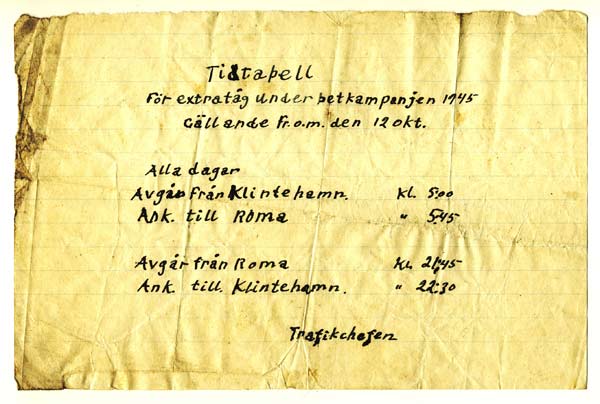 Tidtabell
För extratåg under betkampanjen 1945
Gällande fr.o.m. den 12 okt.
Alla dagar
Avgår från Klintehamn. kl. 5.00
Ank. till Roma " 5.45
Avgår från Roma kl. 21.45
Ank. till. Klintehamn. " 22.30
Trafikchefen